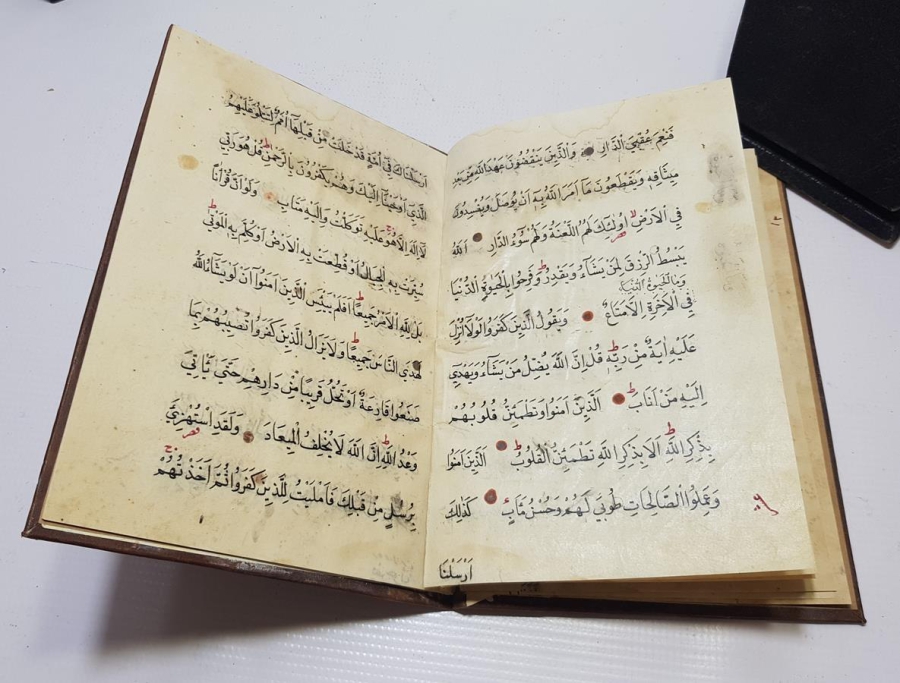 فَنِعْمَ عُقْبَى الدَّارِ وَالَّذِينَ يَنْقُضُونَ عَهْدَ اللهِ مِنْ بَعْدِ
مِيثَاقِهِ وَيَقْطَعُونَ مَا أَمَرَ اللهُ بِهِ أَنْ يُوصَلَ وَيُفْسِدُونَ
فِي الْأَرْضِ أُولَئِكَ لَهُمُ اللَّعْنَةُ وَلَهُمْ سُوءُ الدَّارِ اَللهُ
يَبْسُطُ الرِّزْقَ لِمَنْ يَشَاءُ وَيَقْدِرُ وَفَرِحُوا بِالْحَيٰوةِ الدُّنْيَا
وَمَا الْحَيٰوةُ الدُّنْيَا
فِي الْآخِرَةِ إِلَّا مَتَاعٌ وَيَقُولُ الَّذِينَ كَفَرُوا لَوْلَا أُنْزِلَ
عَلَيْهِ آيَةٌ مِنْ رَبِّهِ قُلْ إِنَّ اللهَ يُضِلُّ مَنْ يَشَاءُ وَيَهْدِي
إِلَيْهِ مَنْ أَنَابَ اَلَّذِينَ آمَنُوا وَتَطْمَئِنُّ قُلُوبُهُمْ
بِذِكْرِ اللهِ أَلَا بِذِكْرِ اللهِ تَطْمَئِنُّ الْقُلُوبُ اَلَّذِينَ آمَنُوا
وَعَمِلُوا الصَّالِحَاتِ طُوبَى لَهُمْ وَحُسْنُ مَآبٍ كَذَلِكَ
أَرْسَلْنَا
أَرْسَلْنَاكَ فِي أُمَّةٍ قَدْ خَلَتْ مِنْ قَبْلِهَا أُمَمٌ لِتَتْلُوَ عَلَيْهِمُ
الَّذِي أَوْحَيْنَا إِلَيْكَ وَهُمْ يَكْفُرُونَ بِالرَّحْمٰنِ قُلْ هُوَ رَبِّي
لَا إِلَهَ إِلَّا هُوَ عَلَيْهِ تَوَكَّلْتُ وَإِلَيْهِ مَتَابِ وَلَوْ أَنَّ قُرْآنًا
سُيِّرَتْ بِهِ الْجِبَالُ أَوْ قُطِّعَتْ بِهِ الْأَرْضُ أَوْ كُلِّمَ بِهِ الْمَوْتَى
بَلْ لِلّٰهِ الْأَمْرُ جَمِيعًا أَفَلَمْ يَيْئَسِ الَّذِينَ آمَنُوا أَنْ لَوْ يَشَاءُ اللهُ
لَهَدَى النَّاسَ جَمِيعًا وَلَا يَزَالُ الَّذِينَ كَفَرُوا تُصِيبُهُمْ بِمَا
صَنَعُوا قَارِعَةٌ أَوْ تَحُلُّ قَرِيبًا مِنْ دَارِهِمْ حَتَّى يَأْتِيَ
وَعْدُ اللهِ إِنَّ اللهَ لَا يُخْلِفُ الْمِيعَادَ وَلَقَدِ اسْتُهْزِئَ
بِرُسُلٍ مِنْ قَبْلِكَ فَأَمْلَيْتُ لِلَّذِينَ كَفَرُوا ثُمَّ أَخَذْتُهُمْ